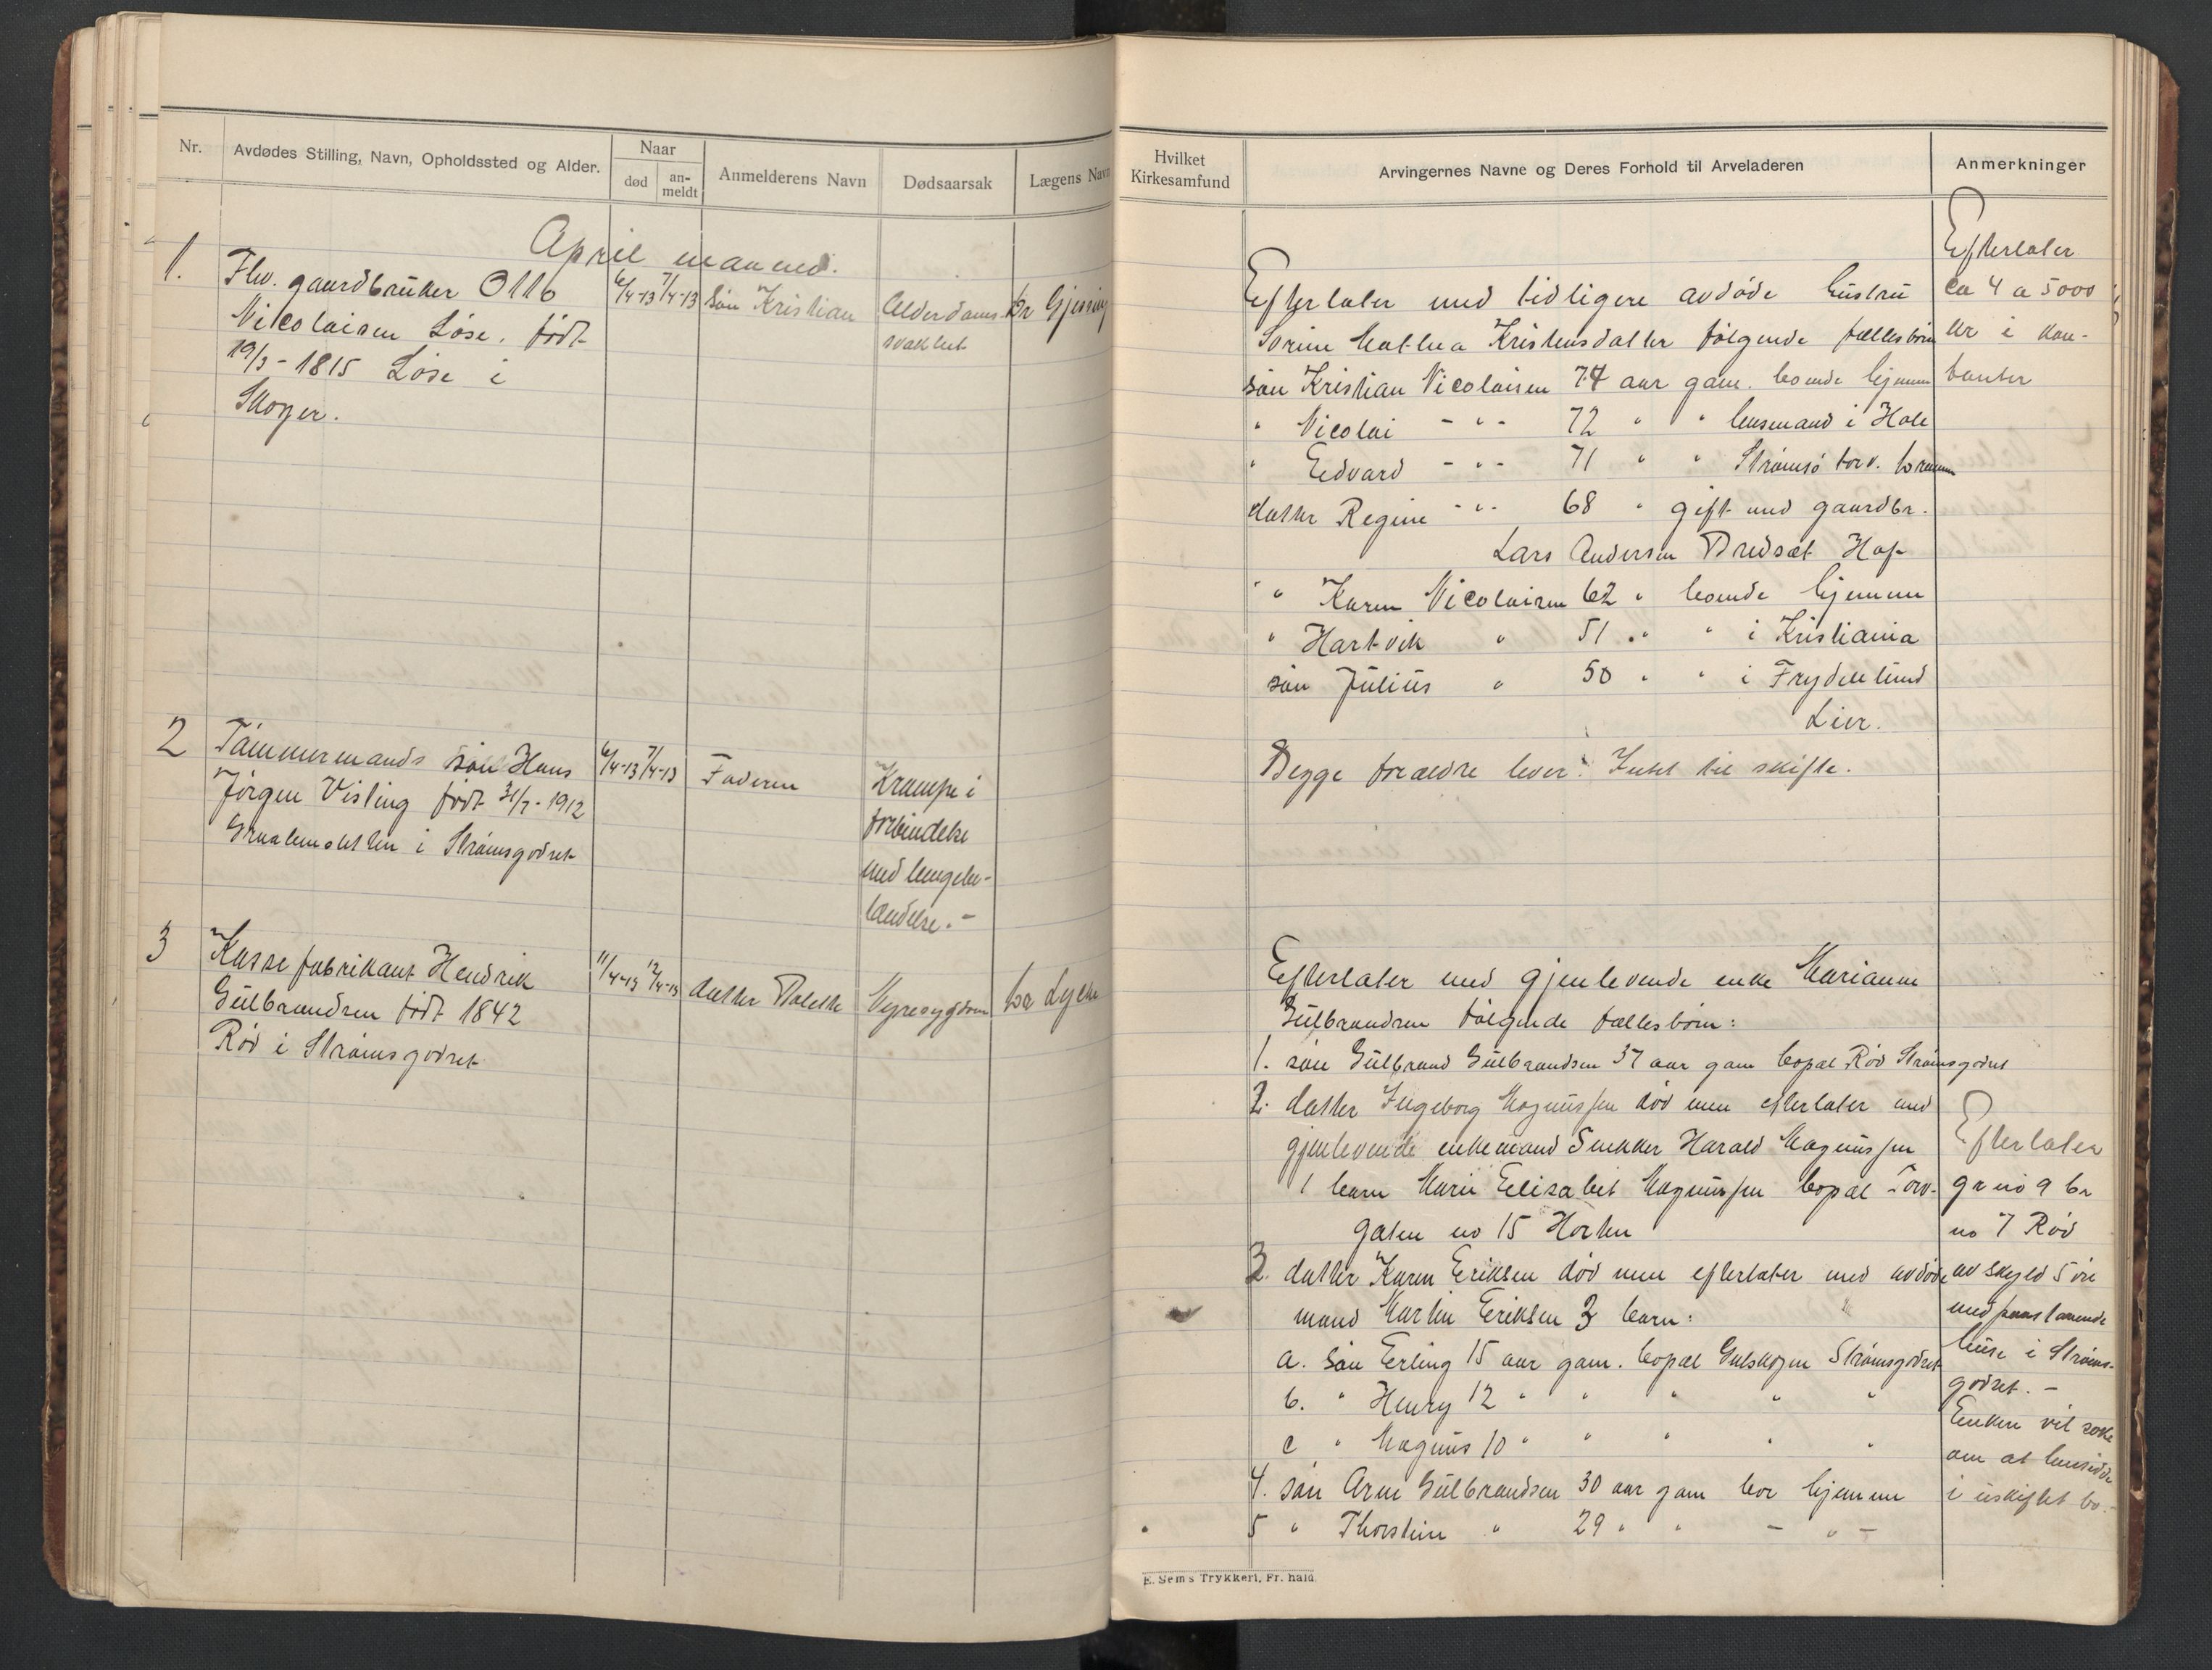 Nr.
Avdødes Stilling, Navn, Opholdssted og Alder.
Naar
død
an-
meldt
Anmelderens Navn
Dødsaarsak
Lægens Navn
April maaned.
1. Fhv. gaardbruker Otto
Nicolaisen Løse. født
19/3-1815 Løse i
Skoger.
6/4-13 7/4-13
søn Kristian
Alderdoms-
svakhet
Dr Gjessing
2 Tømmermands søn Hans
Jørgen Visling født 31/7-1912
i Strømsgodset
6/4-13 7/4-13
Faderen
Krampe i
forbindelse
med lungebe-
tændelse.-
3 Kassefabrikant Hendrik
Gulbrandsen født 1842
Rød i Strømsgodset
11/4-13 12/4-13
datter
Nyresygdom
Dr Lyche
Hvilket
Kirkesamfund
Arvingernes Navne og Deres Forhold til Arveladeren
Anmerkninger
Efterlater med tidligere avdøde hustru
Sorine Mathea Kristensdatter følgende fællesbørn
søn Kristian Nicolaisen 74 aar gam. boende hjemme
" Nicolai - " - 72 " " lensmand i Hole
" Edvard - " - 71 " " Strømsø torv. Drammen
datter Regine - " - 68 " gift med gaardbr.
Lars Andersen Bredsæt Hof
" Karen Nicolaisen 62 " boende hjemme
" Hartvik " 51 " " i Kristiania
søn Julius " 50 " " i Frydenlund
Lier.
Efterlater
ca 4 a 5000
kr i kon-
tanter
Begge forældre lever. Intet til skifte.
Efterlater med gjenlevende enke Marianne
Gulbrandsen følgende fællesbørn:
1. søn Gulbrand Gulbrandsen 37 aar gam bopæl Rød Strømsgodset
2. datter Ingeborg Magnussen død men efterlater med
gjenlevende enkemand Snekker Harald Magnussen
1 barn Marie Elisabet Magnussen bopæl Torv-
gaten no 15 Horten
3. datter Karen Eriksen død men efterlater med avdøde
mand Martin Eriksen 3 barn:
a. søn Erling 15 aar gam. bopæl Gulskogen Strømsgodset
b. " Henry 12 " " " " "
c " Magnus 10 " " " " "
4. søn Arne Gulbrandsen 30 aar gam bor hjemme
5 " Thorstein " 29 " " - " -
Efterlater
gr no 9 br
no 7 Rød
av skyld 5 øre
med paastaaende
huse i Strøms-
godset. -
Enken vil søke
om at hensidde
i uskiftet bo.-
E. Sem's Trykkeri, Fr. hald.